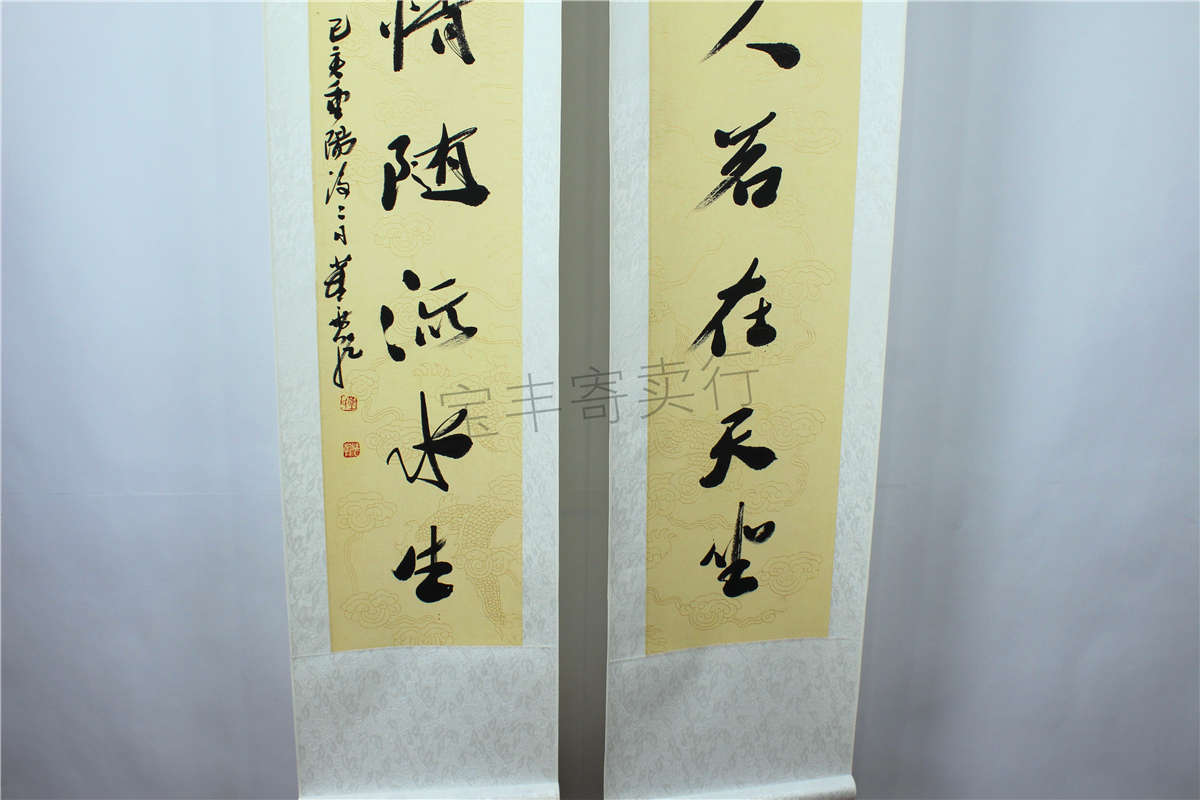 人若在天坐
情随流水生
己亥重陽後二日
宝丰寄卖行